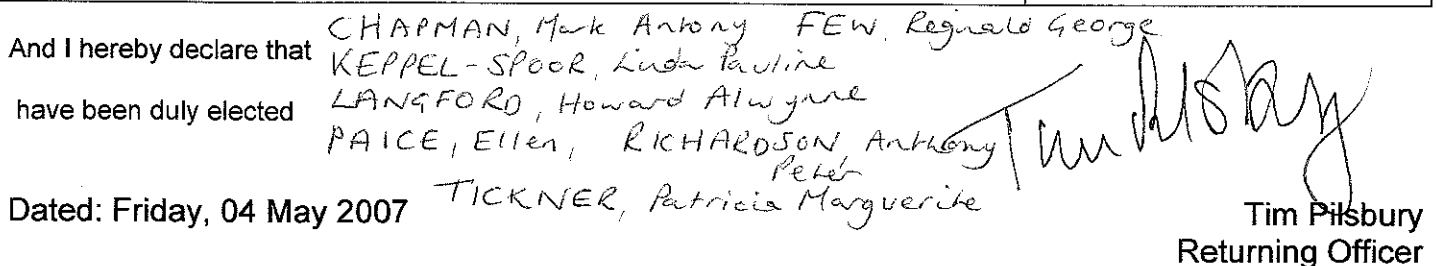 And I hereby declare that CHAPMAN, Mark Antony FEW, Reginald George
KEPPEL-SPOOR, Linda Pauline
have been duly elected LANGFORD, Howard Alwynne
PAICE, Ellen, RICHARDSON, Anthony
Peter
TICKNER, Patricia Marguerite
Dated: Friday, 04 May 2007
Tim Pilsbury
Tim Pilsbury
Returning Officer